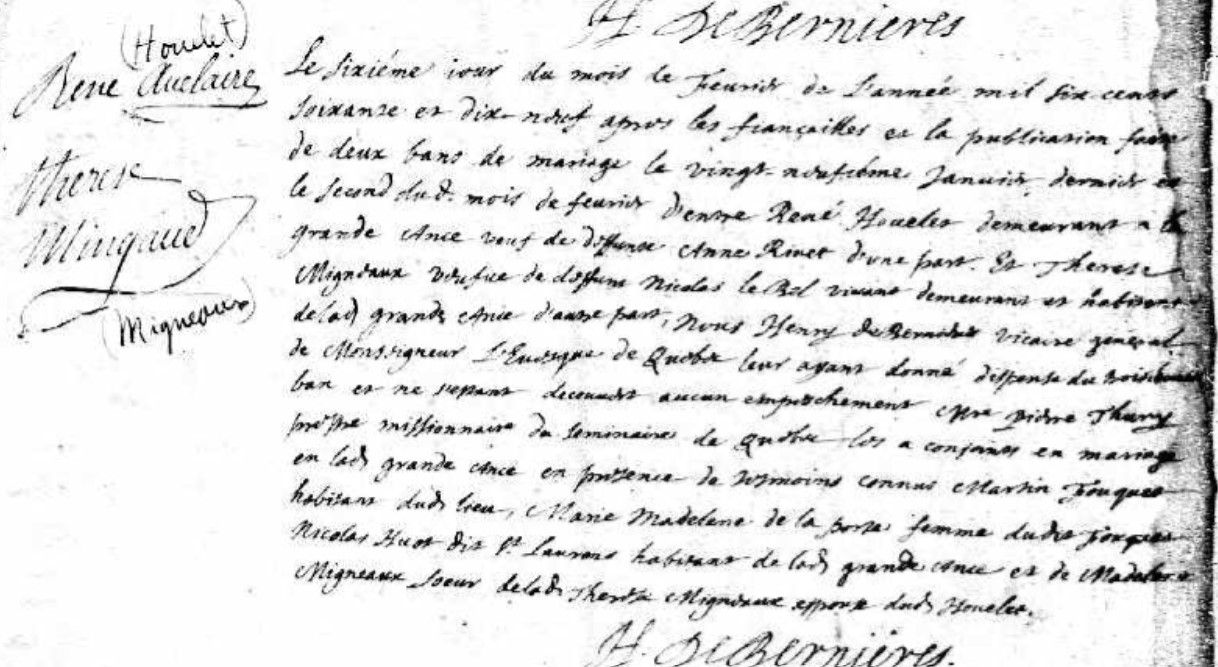 H. De Bernieres
(Houelet)
René Auclaire
Therese
Mingaud
(Migneaux)
Le sixiéme iour du mois de feurier de l'année mil six cents
soixante et dix-neuf apres les fiançailles et la publication faite
de deux bans de mariage le vingt-neufiéme Januier dernier et
le second dud. mois de feurier d'entre René Houelet demeurant a la
grande Ance veuf de deffunte Anne Riuet d'une part. Et Therese
Migneaux veufue de deffunt Nicolas le Bel viuant demeurant et habitant
de lad. grande Ance d'autre part, Nous Henry de Bernieres vicaire general
de Monseigneur L'Euesque de Quebec leur ayant donné dispense du troisiéme
ban et ne s'estant decouuert aucun empeschement Mre Pierre Thury
prestre missionnaire du seminaire de Quebec les a conjoints en mariage
en lad. grande Ance en presence de tesmoins connus Martin Fouquet
habitant dud. lieu, Marie Madelene de la porte femme dudit fouquet
Nicolas Huot dit St. Laurens habitant de lad. grande Ance et de Madelene
Migneaux soeur de lad. Therese Migneaux espouse dud. Houelet.
H. De Bernieres.